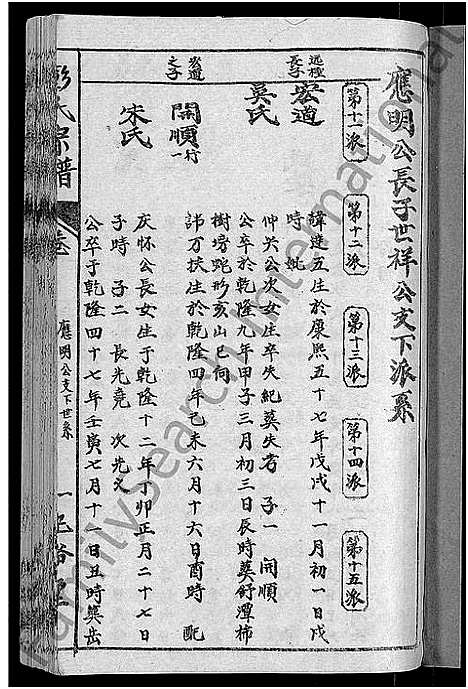 應明公長子世祥公支下派系
第十一派
第十二派
第十三派
第十四派
第十五派
遠 長子
宏道
吳氏
諱達五生於康熙五十七年戊戌十一月初一日戌
時 妣
仲 公次女生卒失紀葬失考 子一 開順
公卒於乾隆九年甲子三月初三日辰時葬舒潭柿
樹塝 形亥山巳向
宏道之子
開順 行一
宋氏
諱万扶生於乾隆四年己未六月十六日酉時 配
庆怀公長女生于乾隆十二年丁卯正月二十七日
子時 子二 長光堯 次光义
公卒于乾隆四十七年壬寅七月十一日丑時葬岳
彭氏宗譜
卷
應明公支下世系
一
FamilySearch International